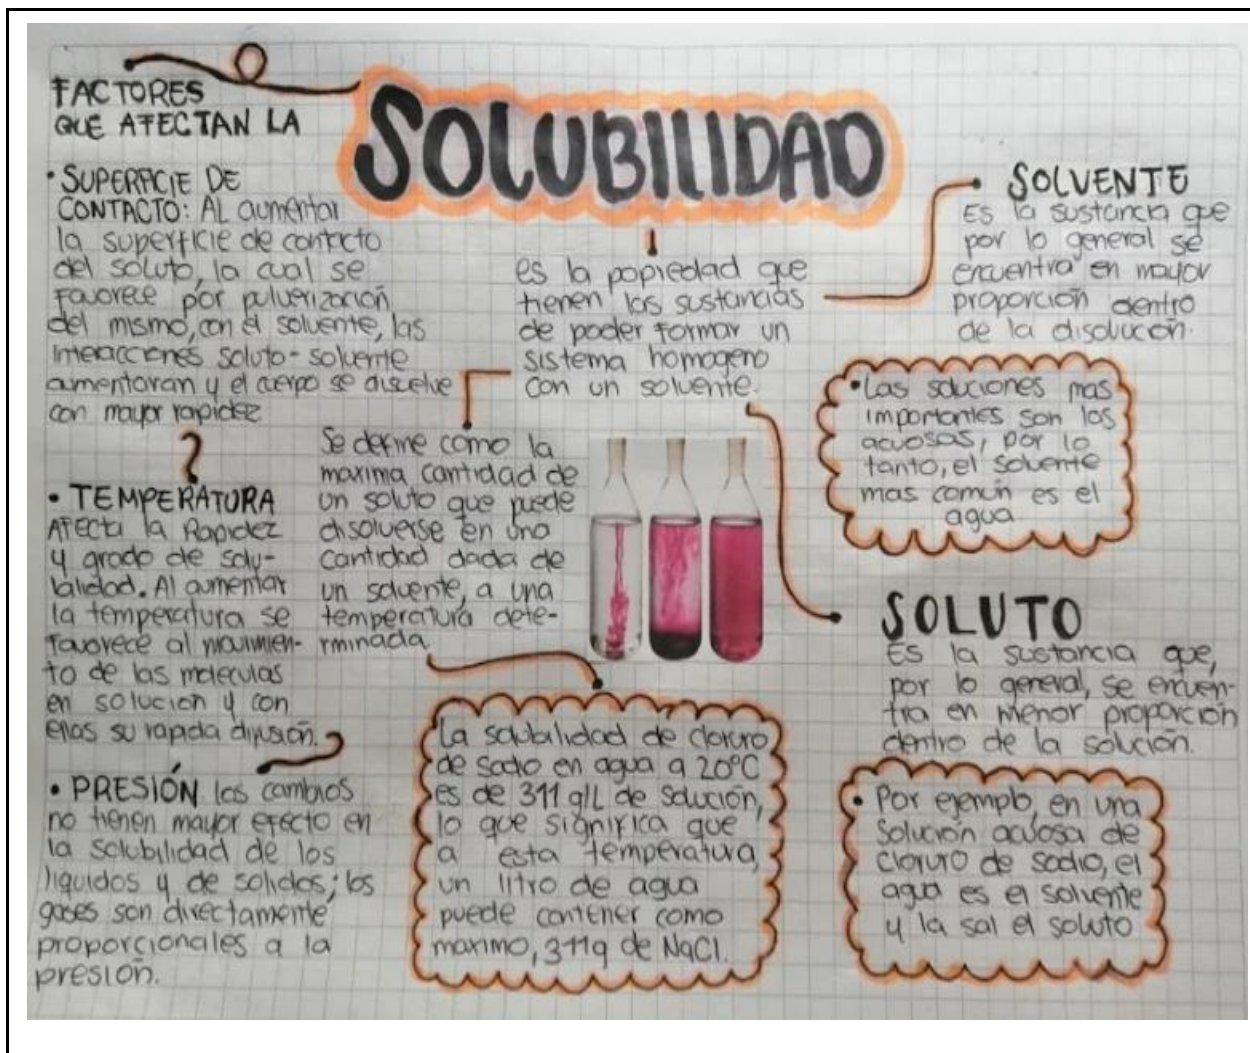 FACTORES
QUE AFECTAN LA
SOLUBILIDAD
• SUPERFICIE DE
CONTACTO: AL aumentar
la superficie de contacto
del soluto, la cual se
Favorece por pulverización
del mismo, con el solvente, las
interacciones soluto-solvente
aumentaran y el cuerpo se disuelve
con mayor rapidez
• TEMPERATURA
AFECTA la Rapidez
y grado de solu-
balidad. Al aumentar
la temperatura se
favorece al movimien-
to de las moleculas
en solucion y con
ellas su rapida difusión.
• PRESIÓN los cambios
no tienen mayor efecto en
la solubilidad de los
liquidos y de solidos; los
gases son directamente
proporcionales a la
presión.
es la popiedad que
tienen las sustancias
de poder formar un
sistema homogeno
con un solvente.
Se define como la
maxima cantidad de
un soluto que puede
disolverse en una
cantidad dada de
un solvente, a una
temperatura dete-
rminada.
La solubalidad de cloruro
de sodio en agua a 20°C
es de 311 g/L de solución,
lo que significa que
a esta temperatura,
un litro de agua
puede contener como
maximo, 311g de NaCl.
SOLVENTE
Es la sustancia que
por lo general se
encuentra en mayor
proporción dentro
de la disolución.
• Las soluciones mas
importantes son las
acuosas, por lo
tanto, el solvente
mas común es el
agua
SOLUTO
Es la sustancia que,
por lo general, se encuen-
tra en menor proporción
dentro de la solución.
• Por ejemplo, en una
solución acuosa de
cloruro de sodio, el
agua es el solvente
y la sal el soluto